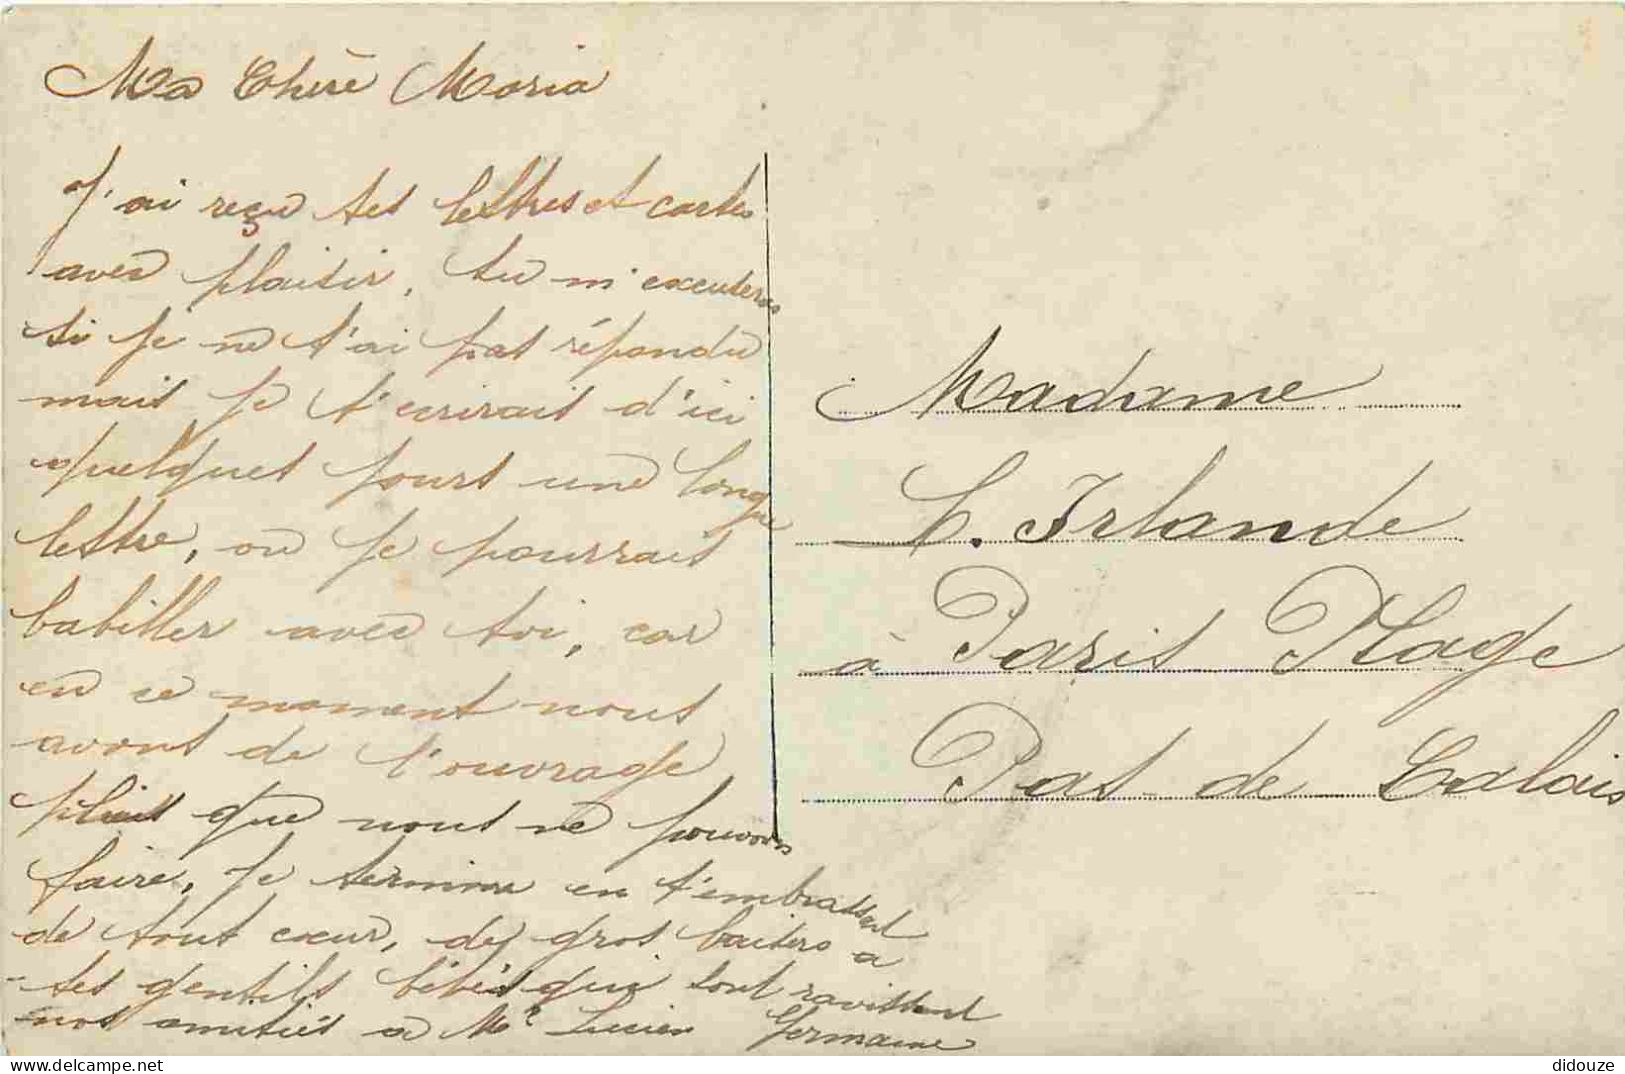 Ma Chère Maria
J'ai reçu tes lettres et cartes
avec plaisir, tu m'excuteras
si je ne t'ai pas répondu
mais je t'ecrirais d'ici
quelques jours une longue
lettre, ou je pourrais
babiller avec toi, car
en ce moment nous
avons de l'ouvrage
plus que nous ne pouvons
faire, je termine en t'embrassant
de tout cœur, de gros baisers a
tes gentils bébés qui sont ravissant
nos amitiés a Mr Lucien Germaine
Madame
L. Irlande
à Paris Plage
Pas de Calais
didouze